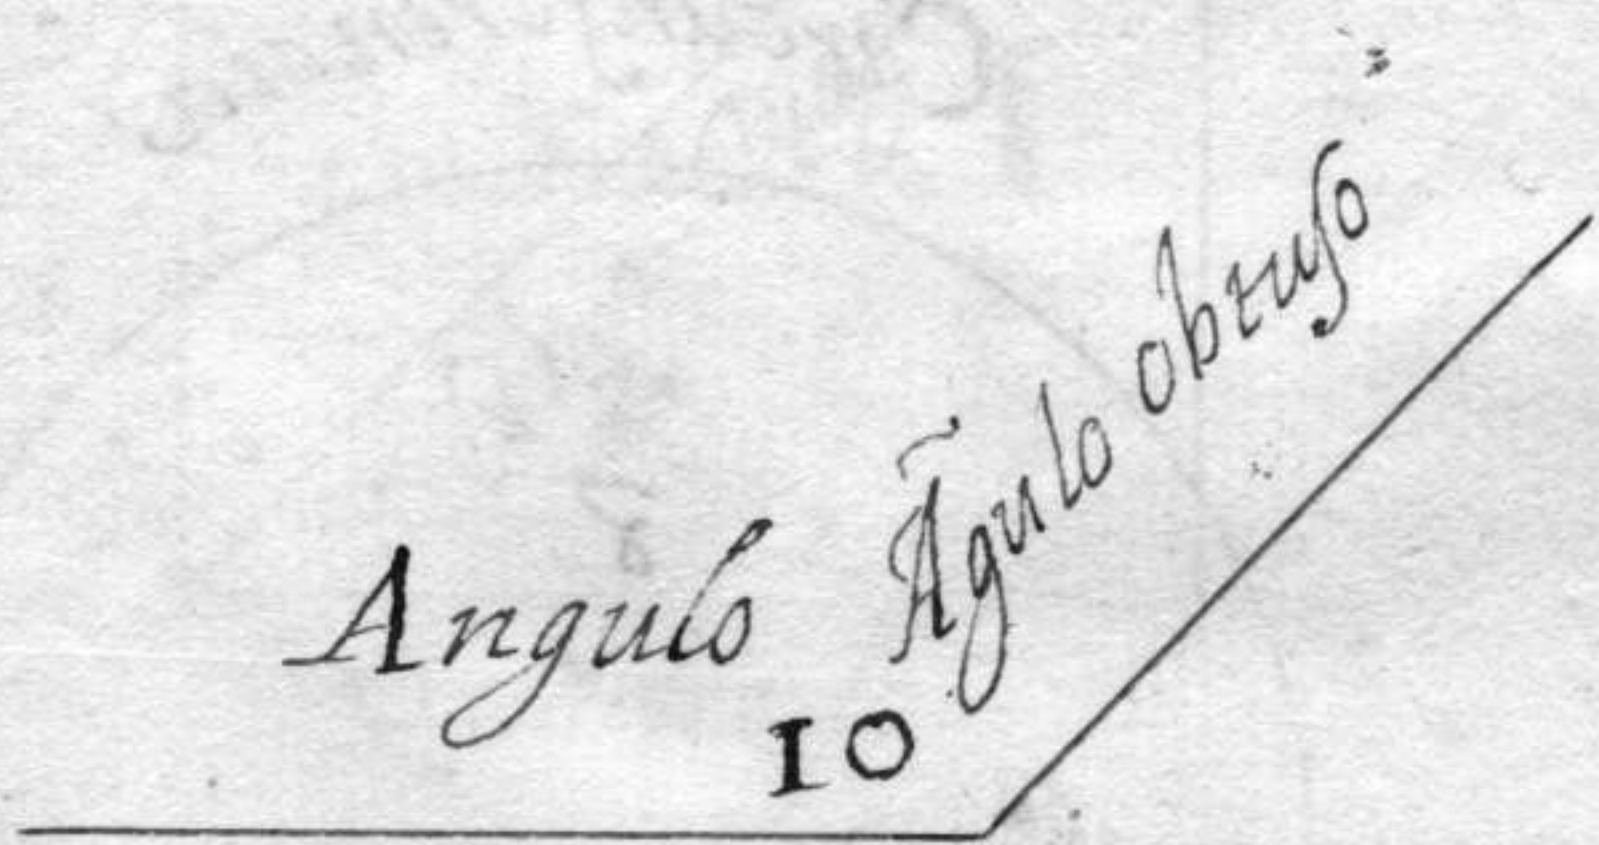 Angulo
Ãgulo obtuſo
10